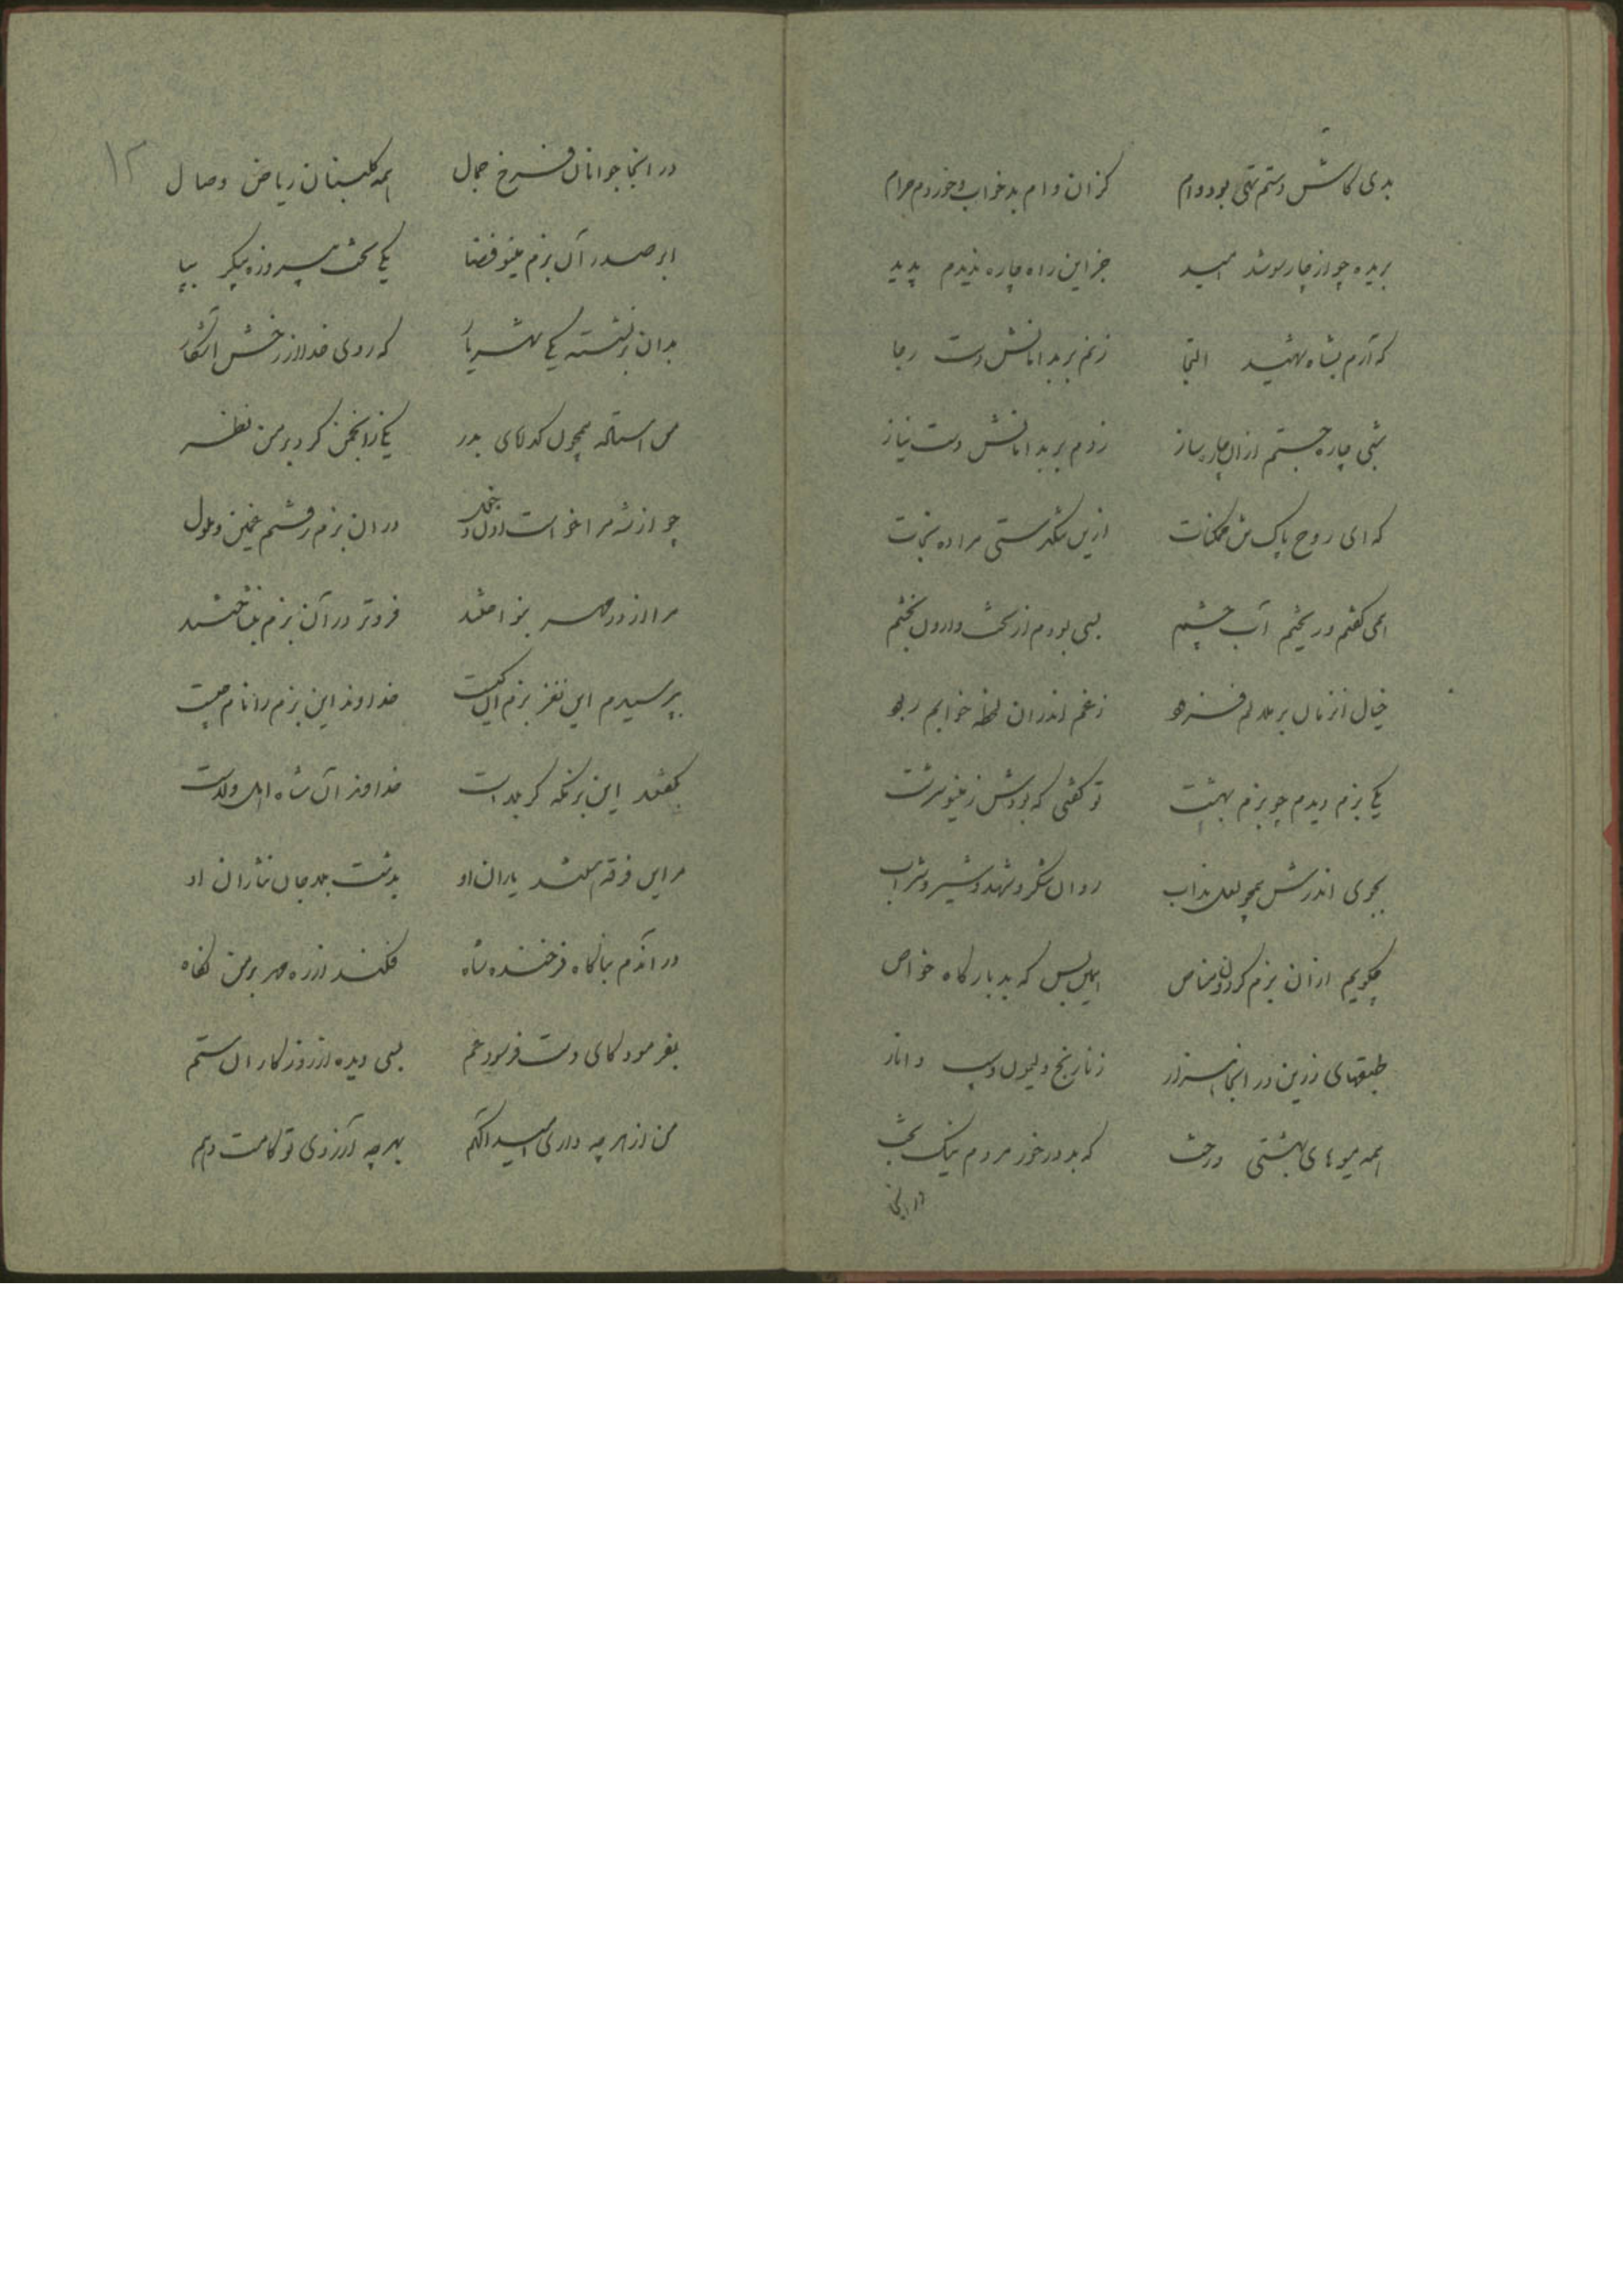 بدی کاش دستم تهی بود و وام کزان وام بد خواب و خوردم حرام
بریده چو از چار سو شد امید جز این راه چاره ندیدم پدید
که آرم بشاه شهید التجا زنم بر بدامانش دست رجا
شبی چاره جستم ازان چاره ساز زدم بر بدامانش دست نیاز
که ای روح پاک تن ممکنات ازین تنگدستی مرا ده نجات
همی گفتم و ریختم آب چشم بسی بودم از بخت وارون بخشم
خیال آنزمان بر ملالم فزود ز غم اندران لحظه خوابم ربود
یکی بزم دیدم چو بزم بهشت تو گفتی که بودش ز مینو سرشت
بجوی اندرش همچو لعل مذاب روان شکر و شهد و شیر و شراب
چگویم ازان بزم گردون مناص همین بس که بد بارگاه خواص
طبقهای زرین در آنجا هزار ز نارنج و لیمون و سیب و انار
همه میوهای بهشتی درخت که بد درخور مردم نیک بخت
در انجا
۱۲
در انجا جوانان فرخ جمال همه گلبنان ریاض وصال
ابر صدر آن بزم مینو فضا یکی تخت پیروزه پیکر بپا
بدان بر نشسته یکی شهریار که روی خدا از رخش آشکار
من استاده همچون گدایان بدر یکی زانجمن کرد بر من نظر
چو از شه مرا خواست اذن دخول دران بزم رفتم غمین و ملول
مرا از در مهر بنواختند فروتر در آن بزم بنشاختند
بپرسیدم این نغز بزم آن کیست خداوند این بزم را نام چیست
بگفتند این بزمگه کربلاست خداوند آن شاه اهل ولاست
مر این فرقه هستند یاران او بدشت بلا جان نثاران او
در آندم بناگاه فرخنده شاه فکند از ره مهر بر من نگاه
بفرمود کای دست فرسود غم بسی دیده از روزگاران ستم
من از هر چه داری امید آگهم بهر چه آرزوی تو کامت دهم